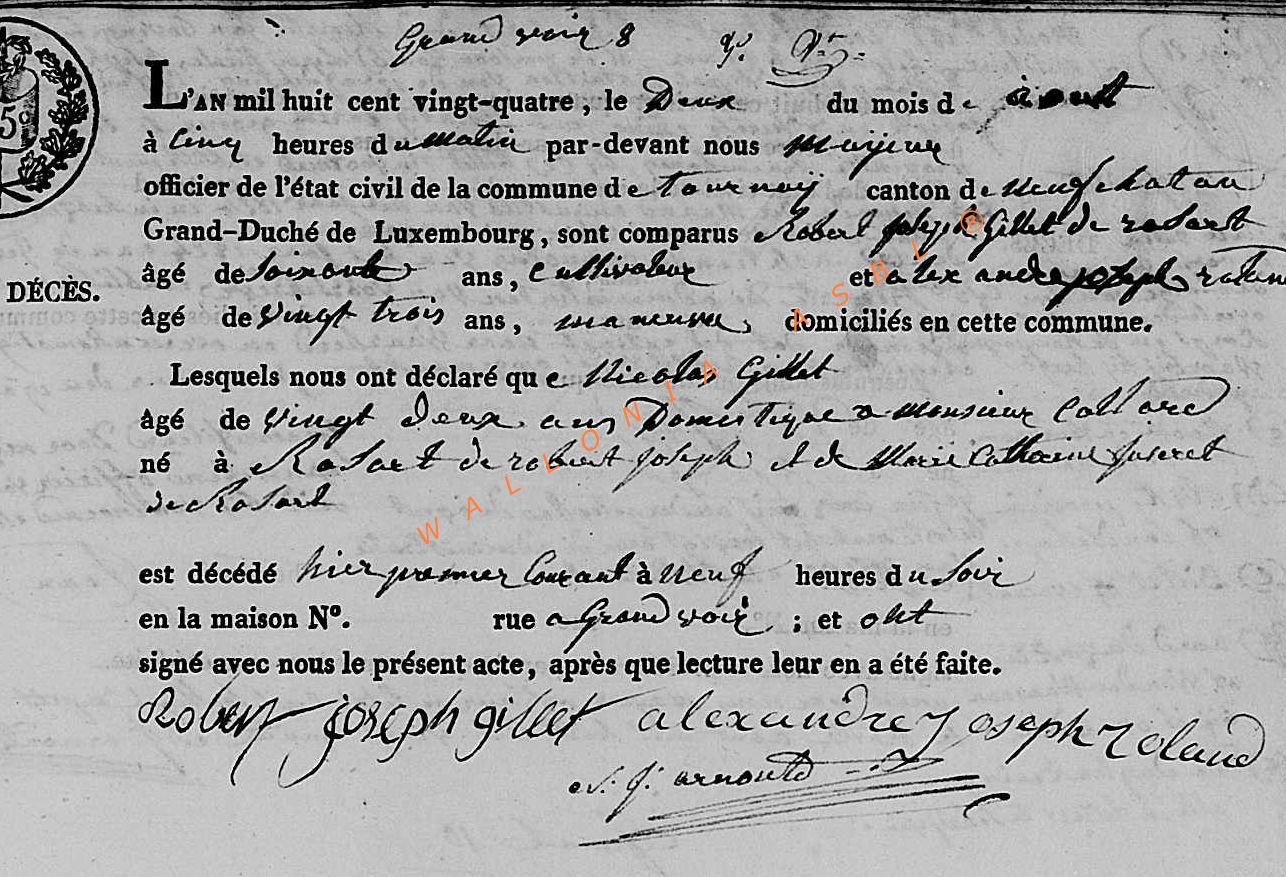 Grand voir 8
L'AN mil huit cent vingt-quatre, le Deux du mois de août
à cinq heures du matin par-devant nous
officier de l'état civil de la commune de tournay canton de neufchatau
Grand-Duché de Luxembourg, sont comparus Robert joseph Gillet de rosart
DÉCÈS.
âgé de soixante ans, cultivateur et alexandre joseph rolan
âgé de vingt trois ans, maneuvre, domiciliés en cette commune.
Lesquels nous ont déclaré que Nicolas Gillet
âgé de vingt deux ans Domestique a Monsieur Collard
né à Rosart de robert joseph et de Marie Catherine
de Rosart
est décédé hier premier Courant à neuf heures du soir
en la maison N°. rue a Grand voir ; et ont
signé avec nous le présent acte, après que lecture leur en a été faite.
Robert joseph gillet alexandre joseph roland
arnould
WALLONIA ASBL ®